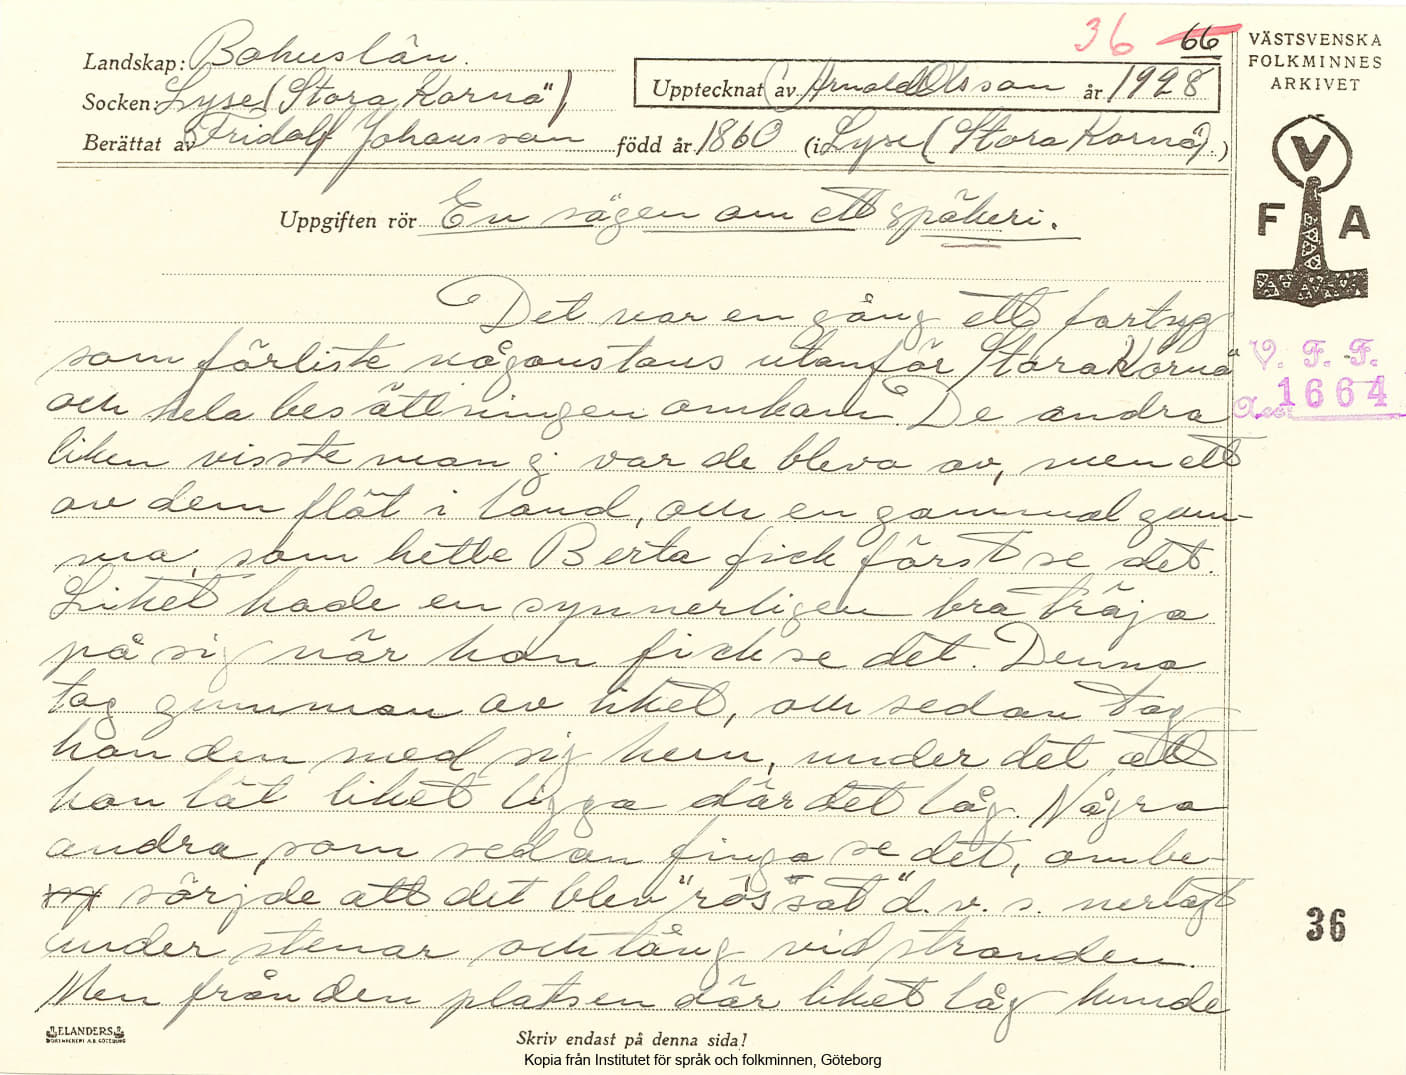 36 66
VÄSTSVENSKA
FOLKMINNES
ARKIVET
Landskap: Bohuslän.
Socken: Lyse (Stora Kornö)
Upptecknat av Arnold Olsson år 1928
Berättat av Fridolf Johansson född år 1860 (i Lyse (Stora Kornö).)
V
F A
Uppgiften rör En sägen om ett spökeri.
Det var en gång ett fartyg
som förliste någonstans utanför Stora Kornö
och hela besättningen omkom. De andra
liken visste man ej var de bleva av, men ett
av dem flöt i land, och en gammal gum-
ma, som hette Berta fick först se det.
Liket hade en synnerligen bra tröja
på sig när hon fick se det. Denna
tog gumman av liket, och sedan tog
hon den med sig hem, under det att
hon lät liket ligga där det låg. Några
andra, som sedan finga se det, ombe-
sörjde att det blev "rös"sat" d. v. s. nerlagt
under stenar och tång vid stranden.
Men från den platsen där liket låg kunde
V. F. F.
Acc. 1664
36
ELANDERS
BOKTRYCKERI A.B. GÖTEBORG
Skriv endast på denna sida!
Kopia från Institutet för språk och folkminnen, Göteborg